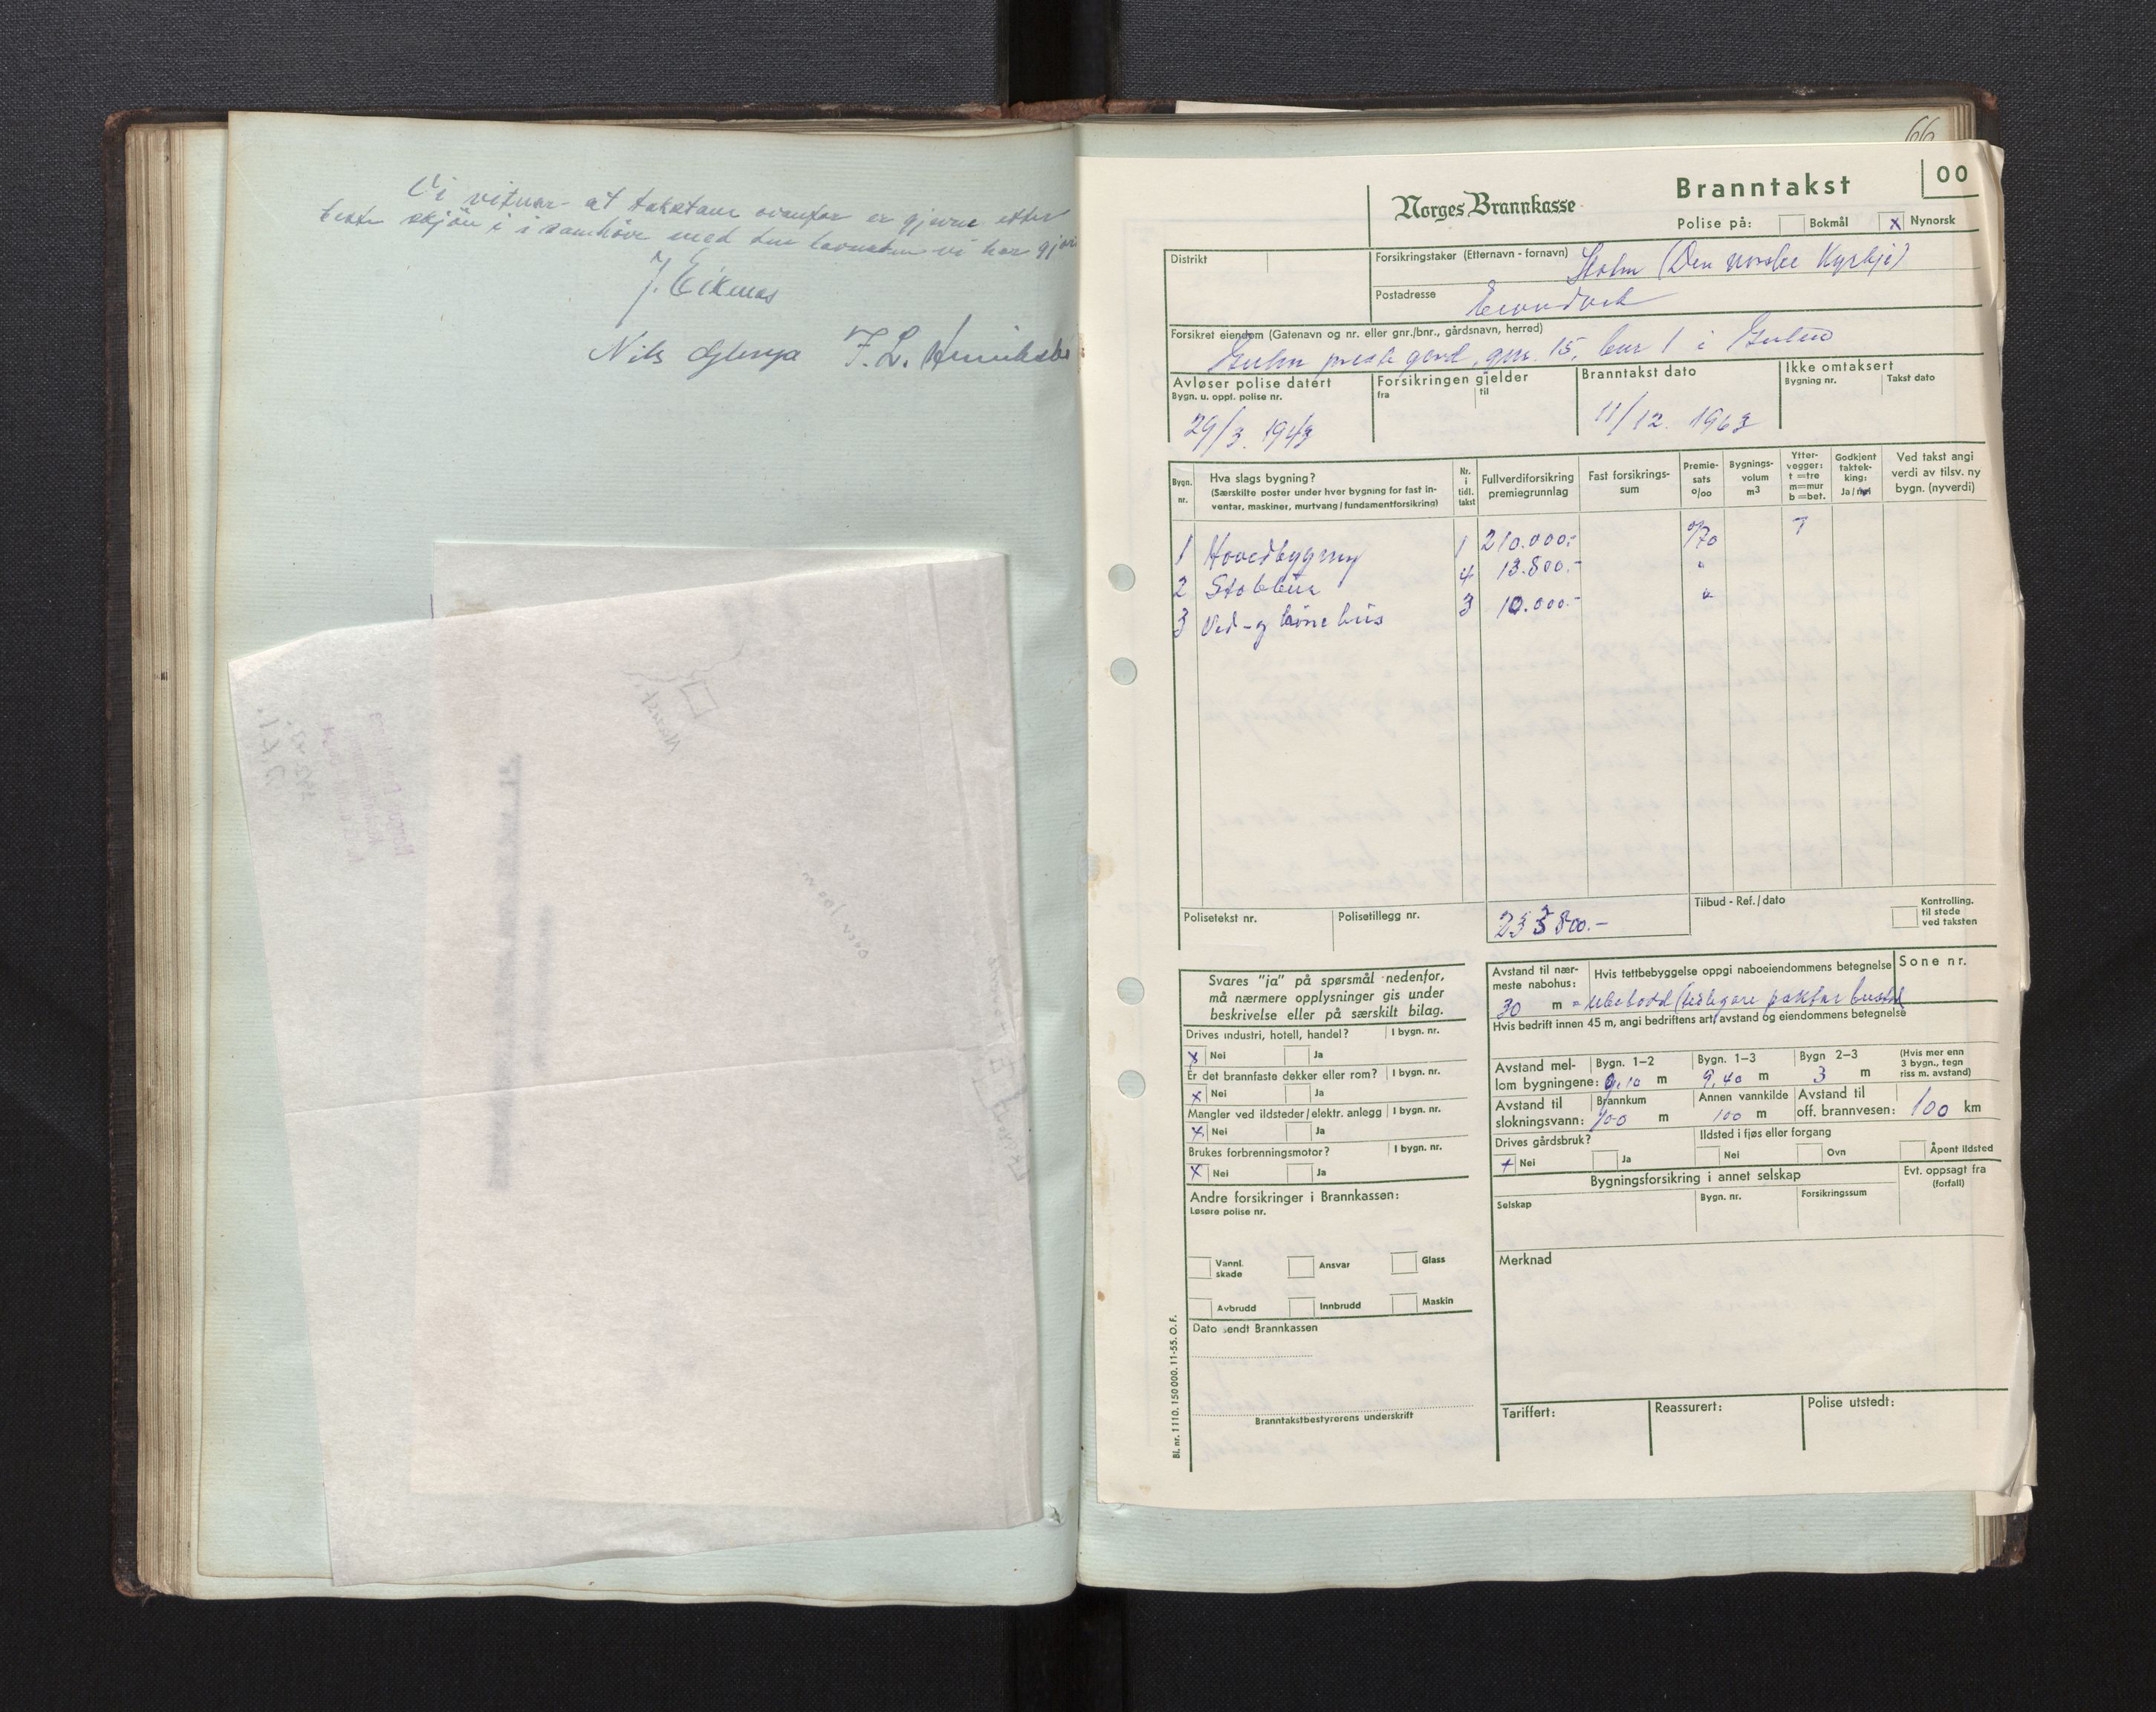 Vi vitnar at takstane ovanfor er gjevne etter
beste skjön i samhöve med den lovnaden vi har
J. Eiknes
Nils F. L. Henriksbö
66
Norges Brannkasse
Branntakst
00
Polise på: Bokmål x Nynorsk
Distrikt
Forsikringstaker (Etternavn - fornavn) (Den norske Kyrkje)
Postadresse Eivindvik
Forsikret eiendom (Gatenavn og nr. eller gnr./bnr., gårdsnavn, herred)
Gulen prestegard, gnr. 15, bnr 1 i Gulen
Avløser polise datert
Bygn. u. oppt. polise nr.
29/3. 1943
Forsikringen gjelder
fra til
Branntakst dato
11/12. 1963
Ikke omtaksert
Bygning nr. Takst dato
Bygn. nr.
Hva slags bygning?
(Særskilte poster under hver bygning for fast in-
ventar, maskiner, murtvang/fundamentforsikring)
Nr. i tidl. takst
Fullverdiforsikring premiegrunnlag
Fast forsikrings- sum
Premie- sats o/oo
Bygnings- volum m3
Ytter- vegger: t=tre m=mur b=bet.
Godkjent taktek- king: Ja/nei
Ved takst angi verdi av tilsv. ny bygn. (nyverdi)
1 Hovedbygning 1 210.000.- T
2 Stabbur 4 13.800.- "
3 Ved- og tönehus 3 10.000.- "
Polisetekst nr. Polisetillegg nr. 800.-
Tilbud - Ref./dato
Kontrolling. til stede ved taksten
Svares "ja" på spørsmål nedenfor,
må nærmere opplysninger gis under
beskrivelse eller på særskilt bilag.
Drives industri, hotell, handel? I bygn. nr.
x Nei Ja
Er det brannfaste dekker eller rom? I bygn. nr.
x Nei Ja
Mangler ved ildsteder/elektr. anlegg I bygn. nr.
x Nei Ja
Brukes forbrenningsmotor? I bygn. nr.
x Nei Ja
Andre forsikringer i Brannkassen:
Løsøre polise nr.
Vannl. skade Ansvar Glass
Avbrudd Innbrudd Maskin
Dato sendt Brannkassen
Branntakstbestyrerens underskrift
Bl. nr. 1110. 150000. 11-55. O. F.
Avstand til nær-
meste nabohus:
30 m
Hvis tettbebyggelse oppgi naboeiendommens betegnelse
ubebodd (tidlegare paktar bustad
Sone nr.
Hvis bedrift innen 45 m, angi bedriftens art, avstand og eiendommens betegnelse
Avstand mel-
lom bygningene: Bygn. 1-2 9,10 m Bygn. 1-3 9,40 m Bygn 2-3 3 m
(Hvis mer enn 3 bygn., tegn riss m. avstand)
Avstand til
slokningsvann: Brannkum 100 m Annen vannkilde 100 m
Avstand til
off. brannvesen: 100 km
Drives gårdsbruk?
x Nei Ja
Ildsted i fjøs eller forgang
Nei Ovn Åpent ildsted
Bygningsforsikring i annet selskap
Evt. oppsagt fra (forfall)
Selskap Bygn. nr. Forsikringssum
Merknad
Tariffert: Reassurert: Polise utstedt: